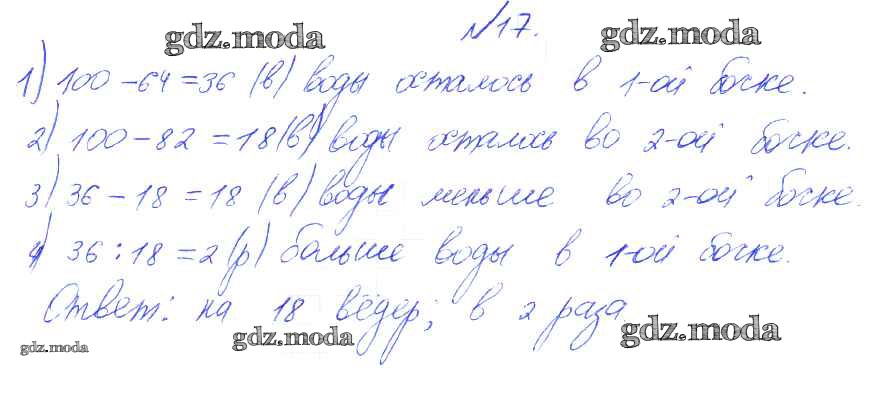 gdz.moda №17. gdz.moda
1) 100 – 64 = 36 (в) воды осталось в 1-ой бочке.
2) 100 – 82 = 18 (в) воды осталось во 2-ой бочке.
3) 36 – 18 = 18 (в) воды меньше во 2-ой бочке.
4) 36 : 18 = 2 (р) больше воды в 1-ой бочке.
Ответ: на 18 вёдер; в 2 раза
gdz.moda gdz.moda gdz.moda